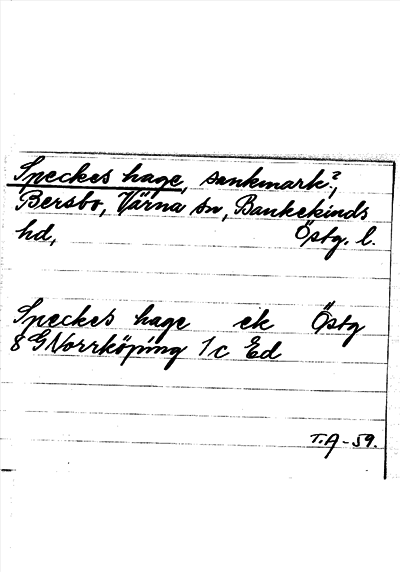 Speckes hage, sankmark?,
Bersbo, Värna sn, Bankekinds
hd, Östg. l.
Speckes hage ek Östg
8 G Norrköping 1 c Ed
T.A-59.